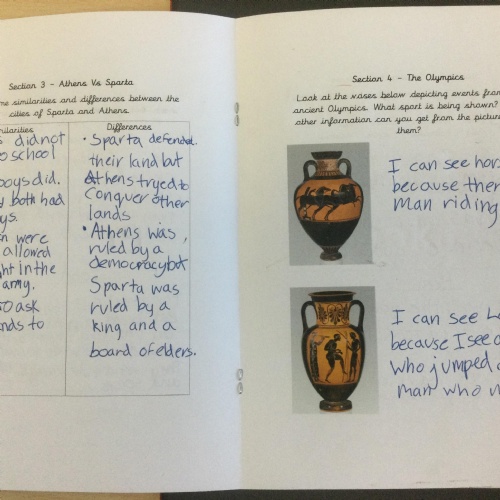 Section 3 - Athens Vs Sparta
me similarities and differences between the
cities of Sparta and Athens.
milarities
didnot
school
boys did.
both had
ys.
en were
allowed
ght in the
army.
so ask
nds to
Differences
• Sparta defended
their land but
Athens tryed to
Conquer other
lands
• Athens was
ruled by a
democracy but
Sparta was
ruled by a
king and a
board of elders.
Section 4 - The Olympics
Look at the vases below depicting events from
ancient Olympics. What sport is being shown?
other information can you get from the picture
them?
I can see hors
because ther
Man riding
I can see
because I see
who jumped
man who